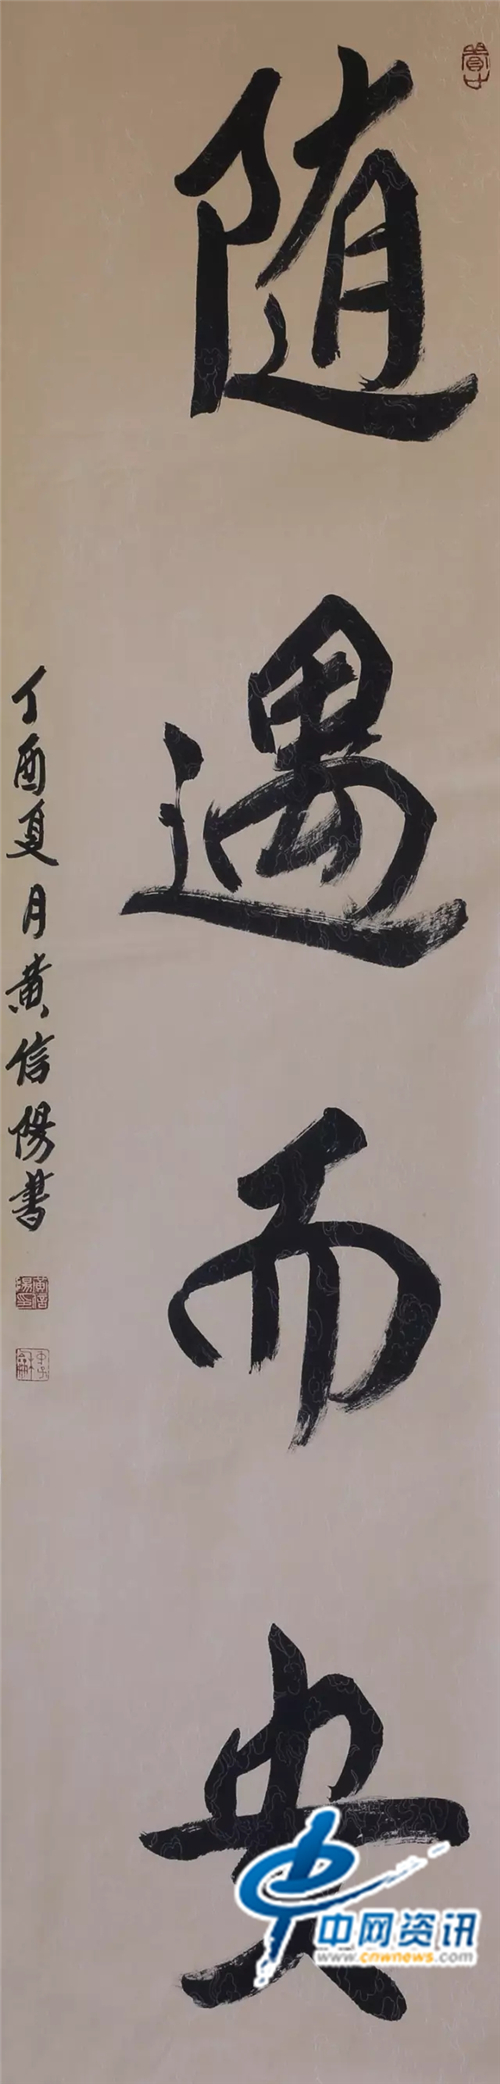 随遇而安
丁酉夏月黄信阳书
中网资讯
www.cnwnews.com